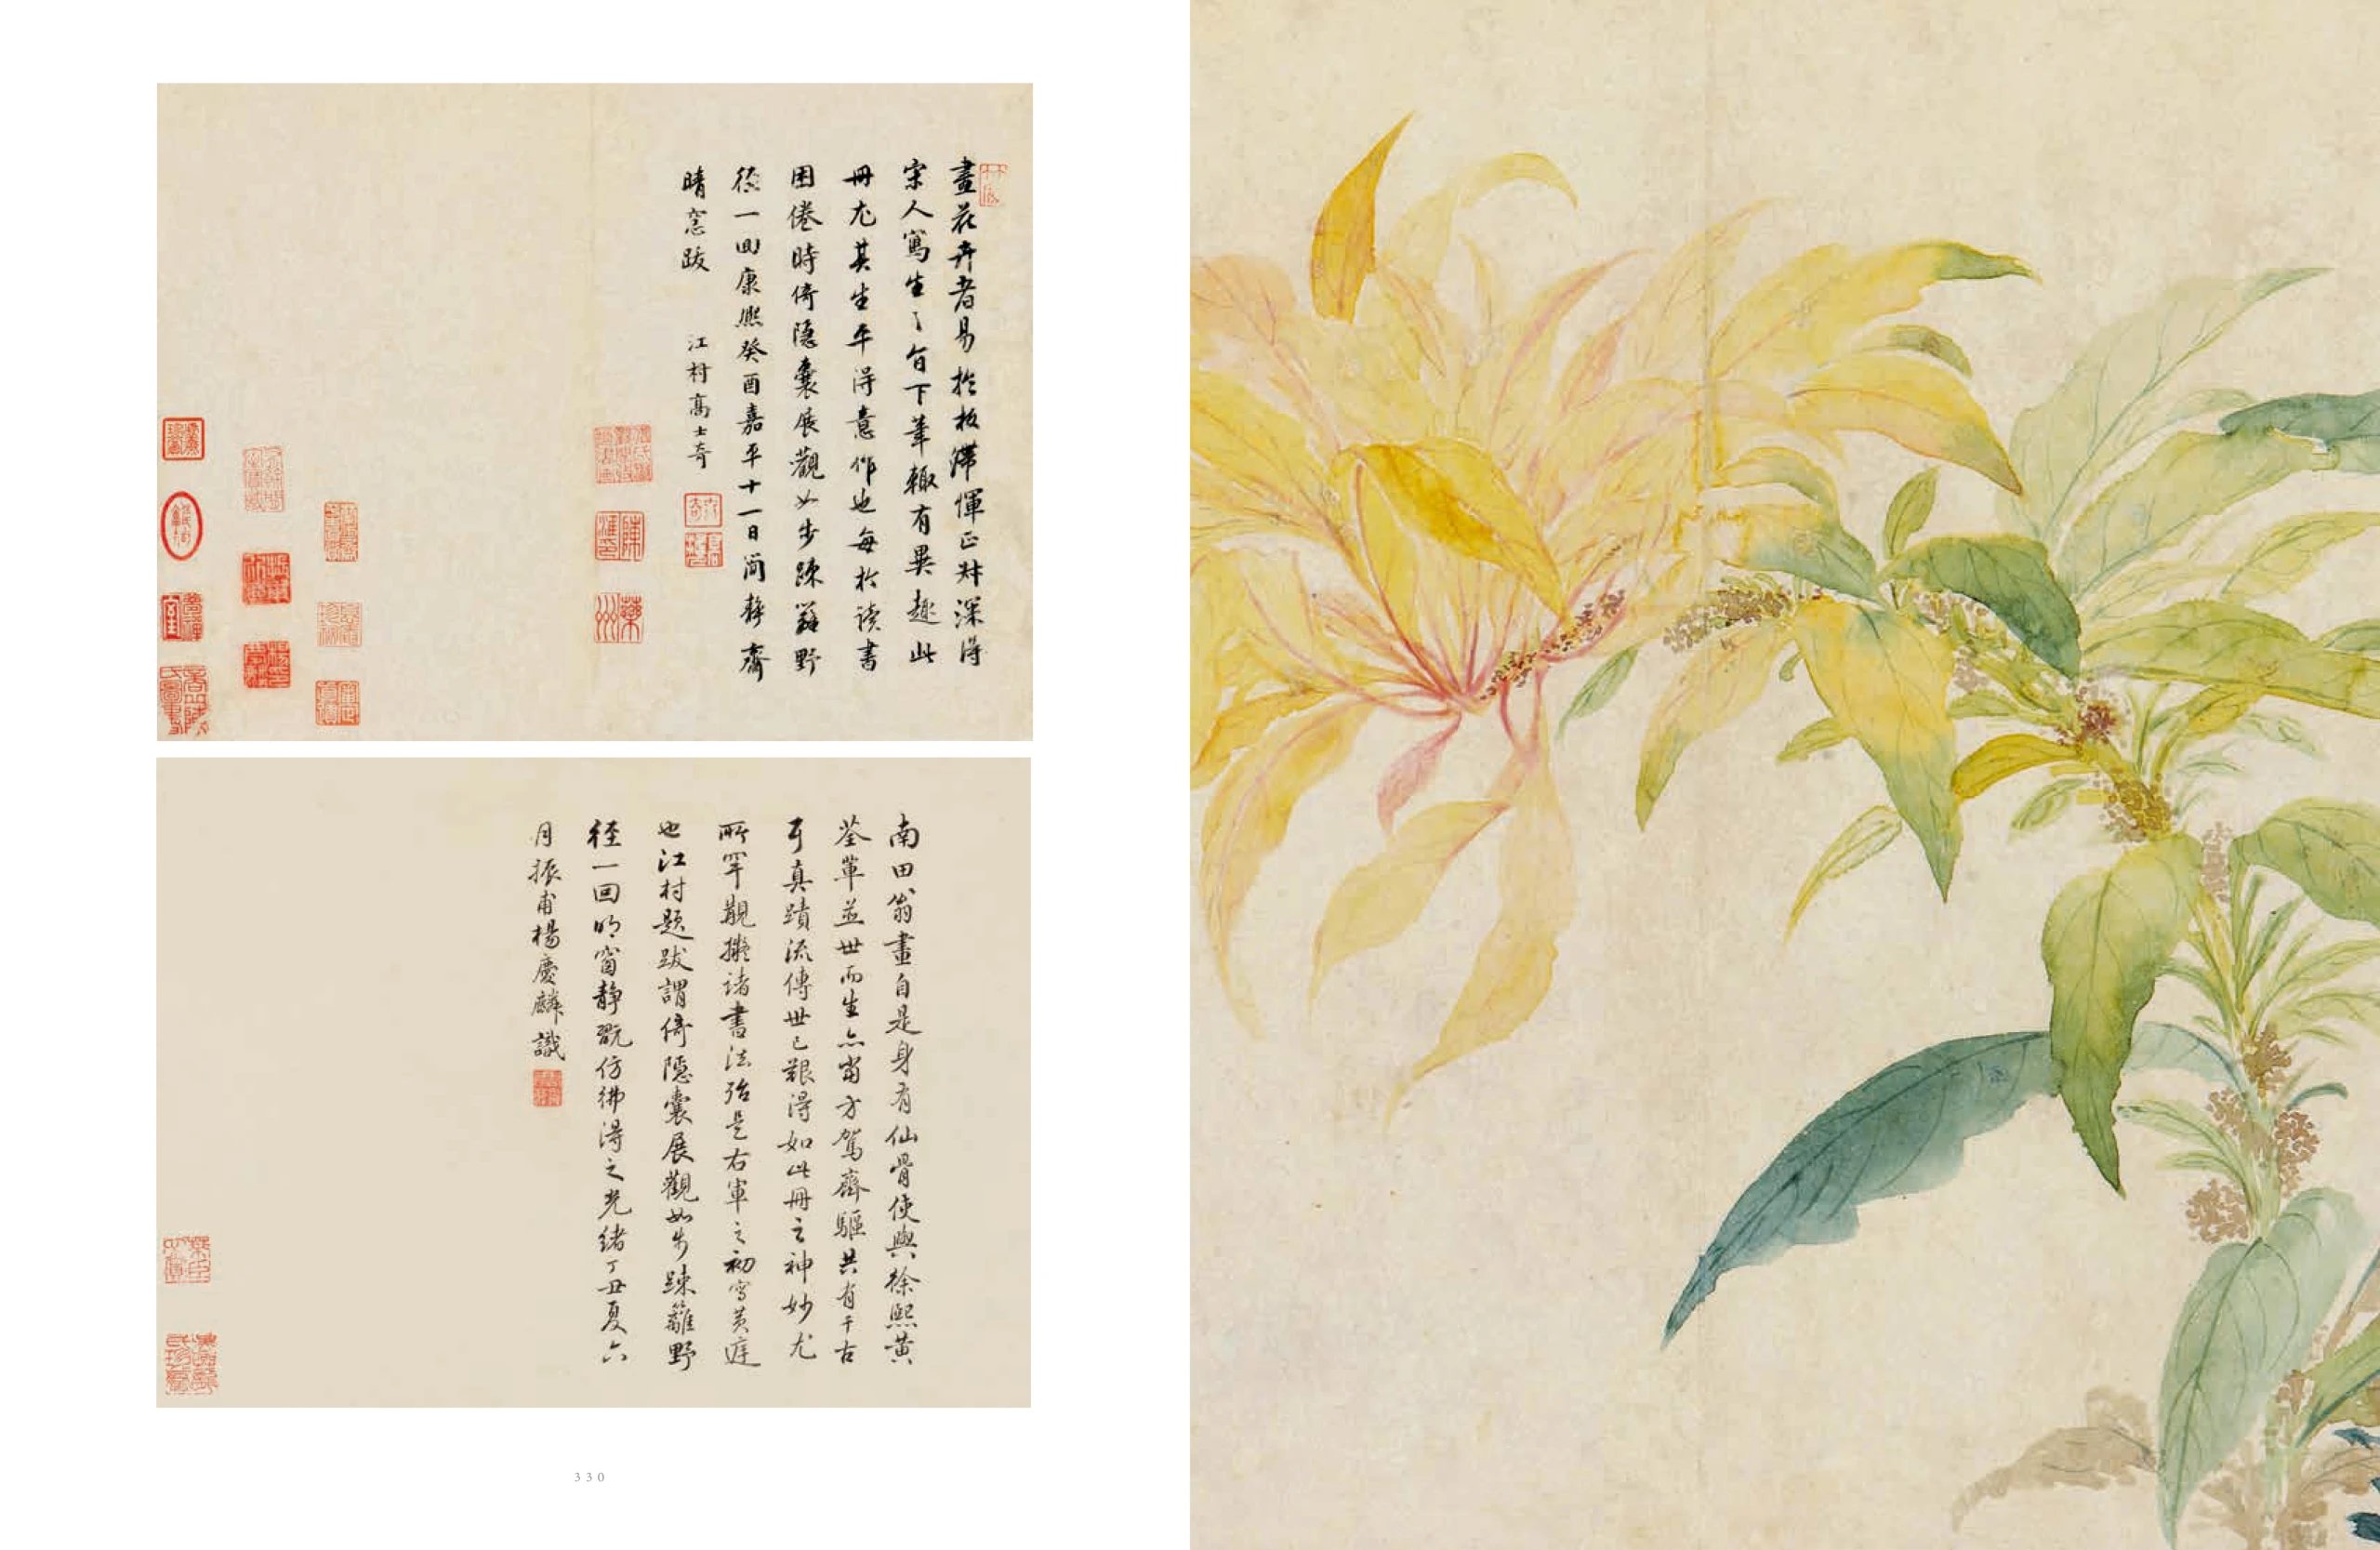 畫花卉者易於板滯惲正叔深得
宋人寫生生句下筆輒有異趣此
冊尤其生平得意作也每於讀書
困倦時倚隱囊展觀如步疎籬野
徑一回康熙癸酉嘉平十一日簡靜齋
晴窓跋
江村高士奇
南田翁畫自是身有仙骨使與徐熙黃
荃輩並世而生亦當方駕齊驅共有千古
真蹟流傳世已艱得如此冊之神妙尤
所罕觀擬諸書法殆是右軍之初寫黃庭
也江村題跋謂倚隱囊展觀如步疎籬野
徑一回明窗靜翫仿彿得之光緒丁丑夏六
月振甫楊慶麟識
330